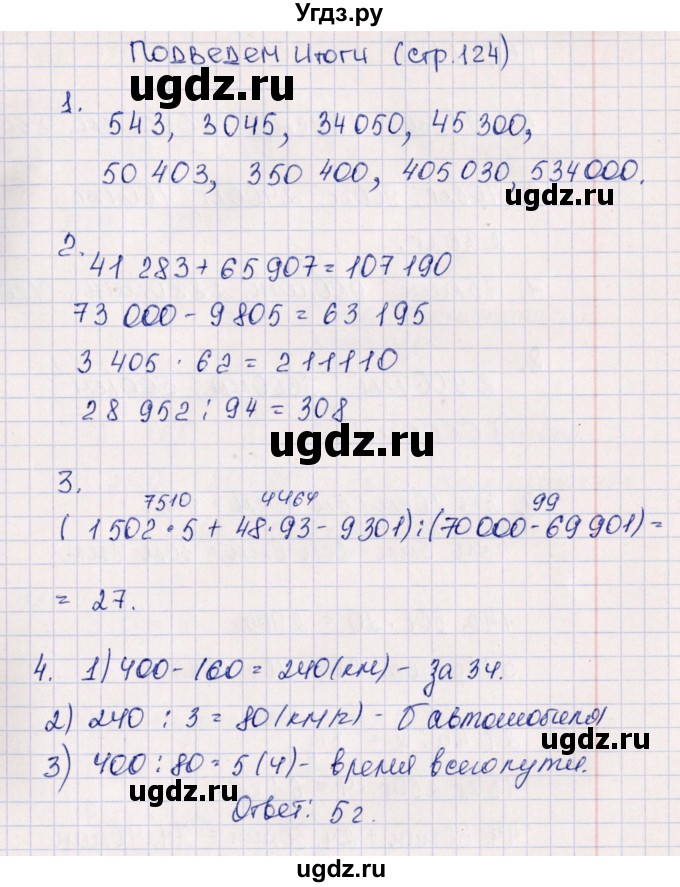 Угдз.ру
Подведем итоги (стр.124)
ugdz.ru
1.
543, 3045, 34050, 45 300,
50 403, 350 400, 405 030, 534 000.
ugdz.ru
2.
41 283 + 65 907 = 107 190
73 000 - 9 805 = 63 195
3 405 · 62 = 211110
28 952 : 94 = 308
ugdz.ru
3.
7510 4464 99
( 1 502 · 5 + 48 · 93 - 9 301) : (70 000 - 69 901) =
= 27.
4. 1) 400 - 160 = 240 (км) - за 3ч.
2) 240 : 3 = 80 (км/г) - автомобиля
ugdz.ru
3) 400 : 80 = 5 (ч) - время всего пути.
ugdz.ru
Ответ: 5 г.
ugdz.ru